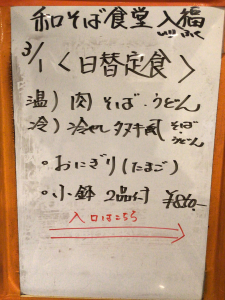 和そば食堂 入福
3/1 <日替定食>
温) 肉そば・うどん
冷) 冷やしタヌキ風 そば・うどん
○おにぎり(たまご)
○小鉢 2品付 ¥850-
入口はこちら